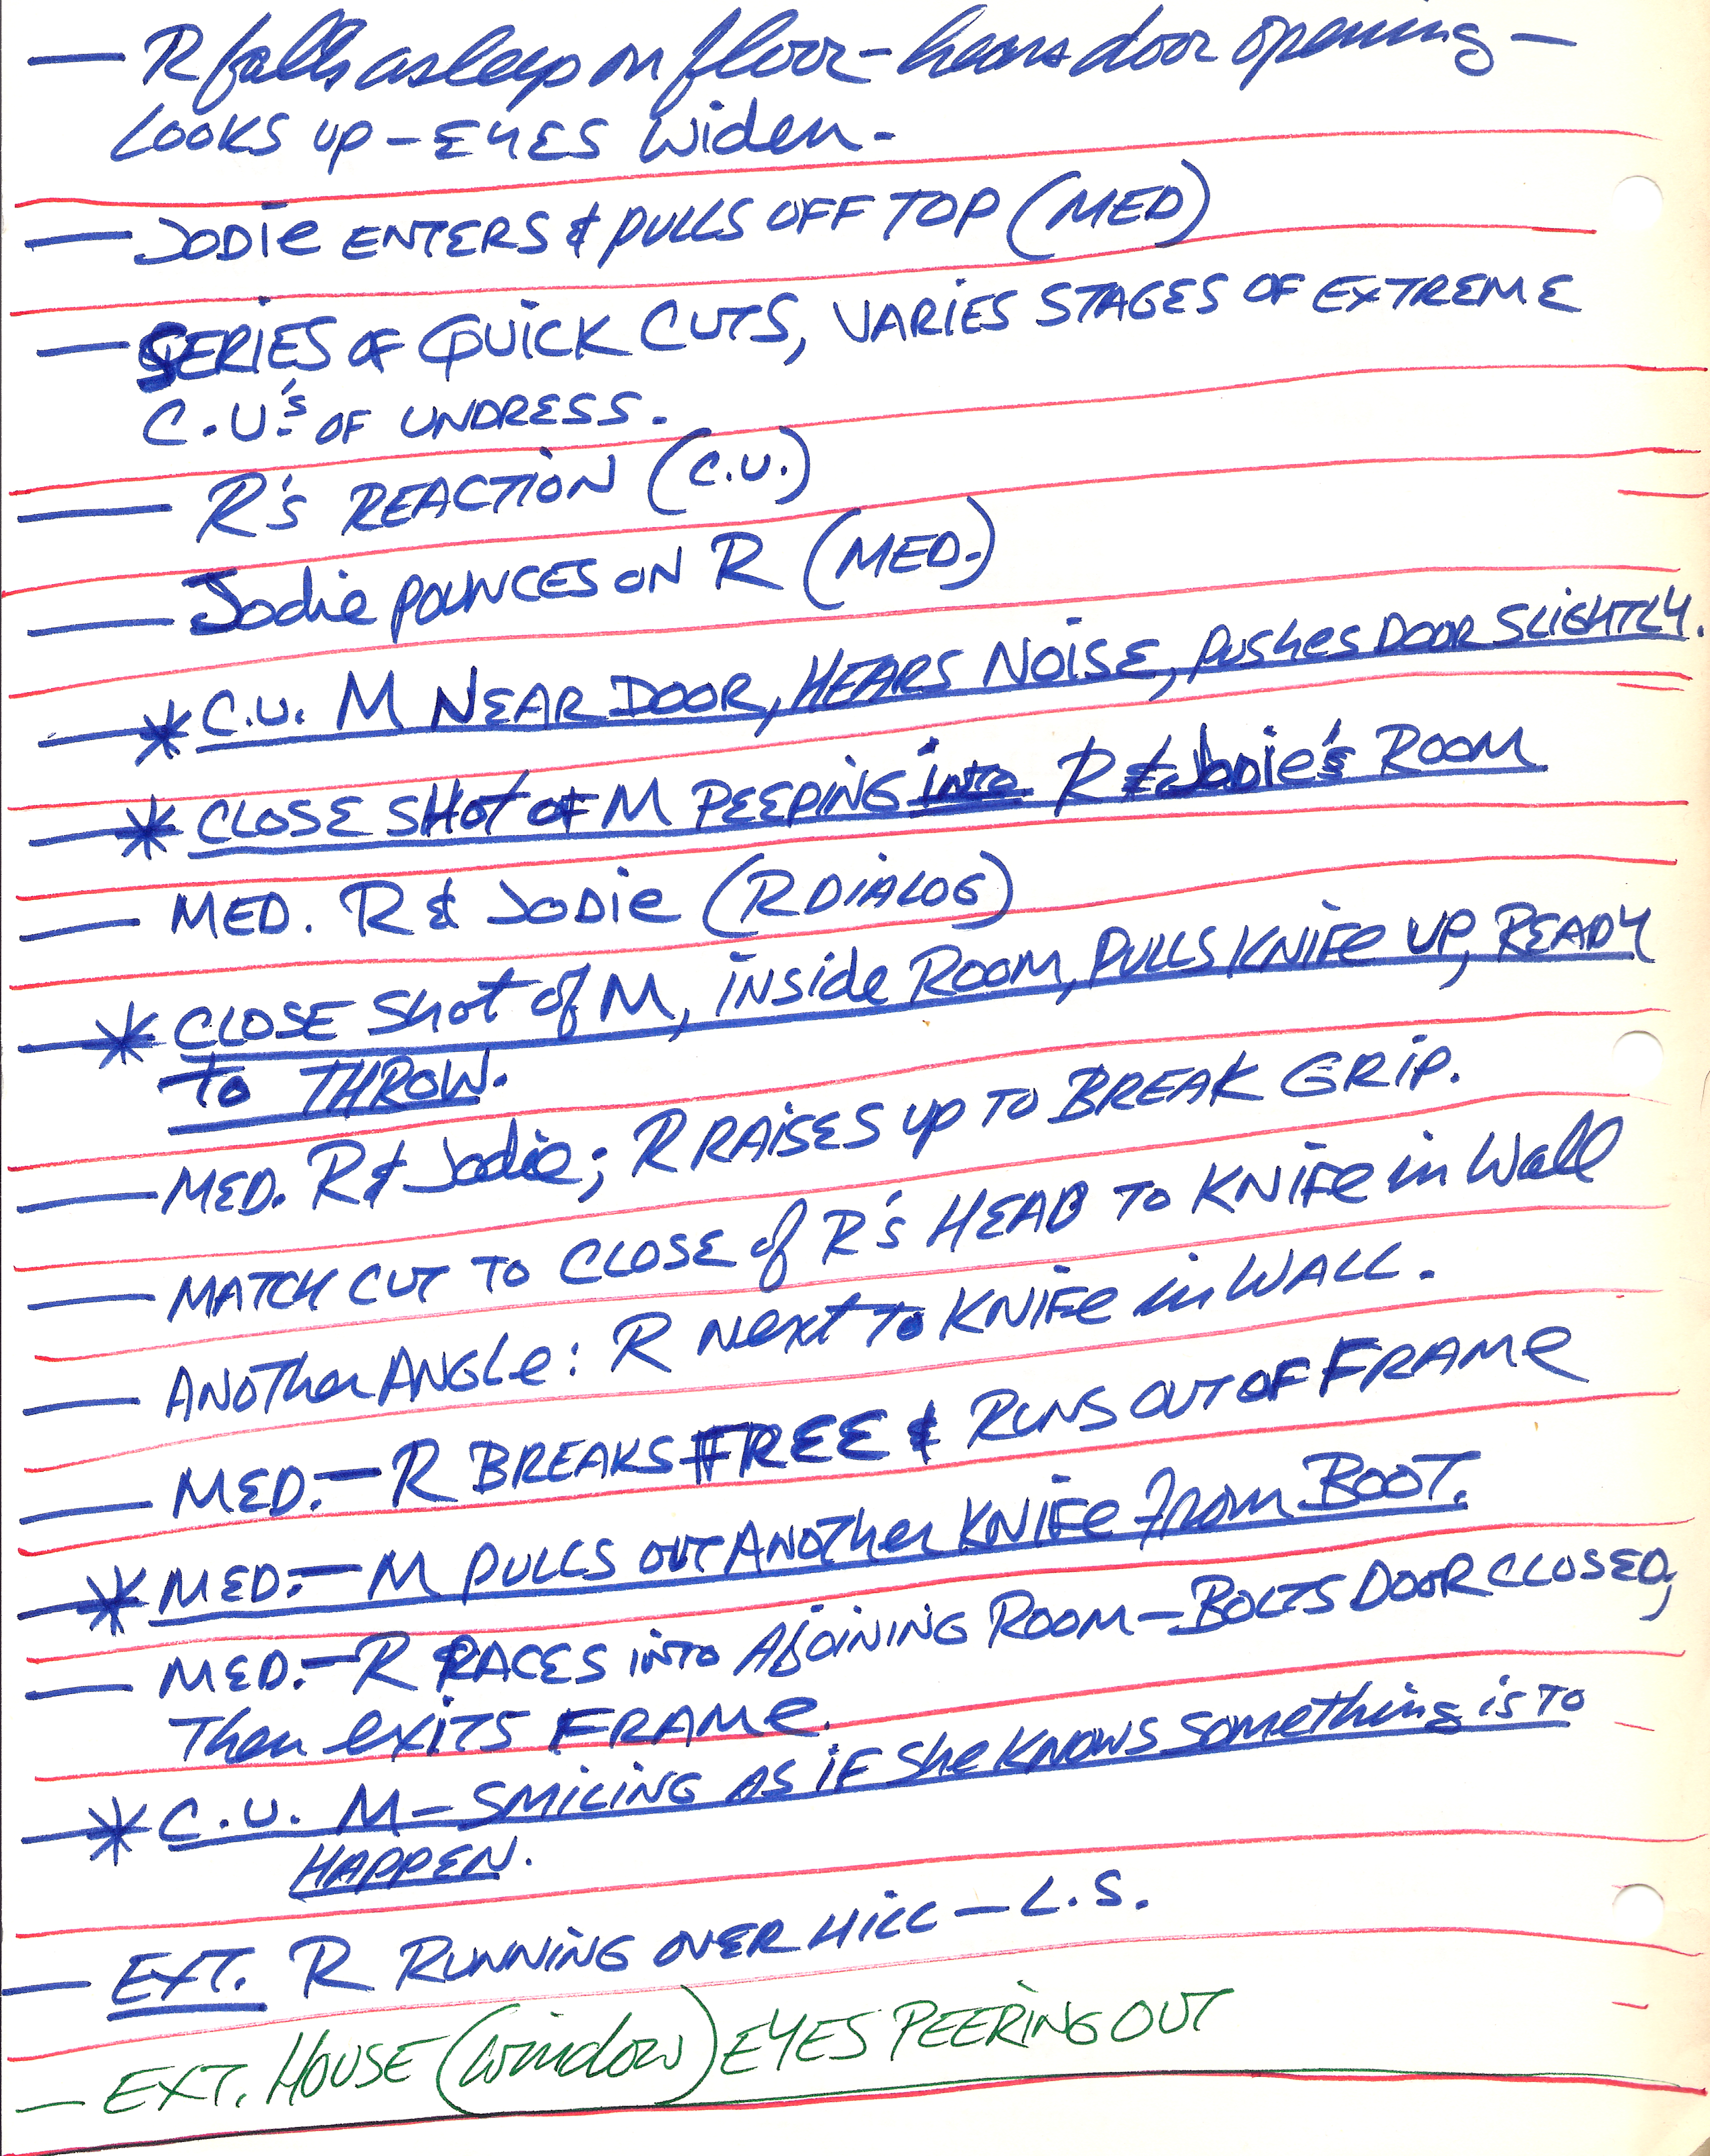 — R falls asleep on floor – hears door opening –
LOOKS UP – EYES Widen –
— JODIE ENTERS & PULLS OFF TOP (MED)
— SERIES OF QUICK CUTS, VARIES STAGES OF EXTREME
C.U.'s OF UNDRESS.
— R's REACTION (C.U.)
— Jodie POUNCES ON R (MED.)
— * C.U. M NEAR DOOR, HEARS NOISE, PUSHES DOOR SLIGHTLY.
— * CLOSE SHOT OF M PEEPING INTO R & JODIE'S ROOM
— MED. R & JODIE (R DIALOG)
— * CLOSE SHOT OF M, INSIDE ROOM, PULLS KNIFE UP, READY
TO THROW.
— MED. R & Jodie; R RAISES UP TO BREAK GRIP.
— MATCH CUT TO CLOSE of R's HEAD TO KNIFE in Wall
— ANOTHER ANGLE: R NEXT TO KNIFE in WALL.
— MED. – R BREAKS FREE & RUNS OUT OF FRAME
— * MED. – M PULLS OUT ANOTHER KNIFE from BOOT.
— MED. – R RACES INTO AJOINING ROOM – BOLTS DOOR CLOSED,
Then EXITS FRAME.
— * C.U. M – SMILING AS IF She KNOWS Something is TO
HAPPEN.
— EXT. R RUNNING OVER HILL – L.S.
— EXT. HOUSE (window) EYES PEERING OUT